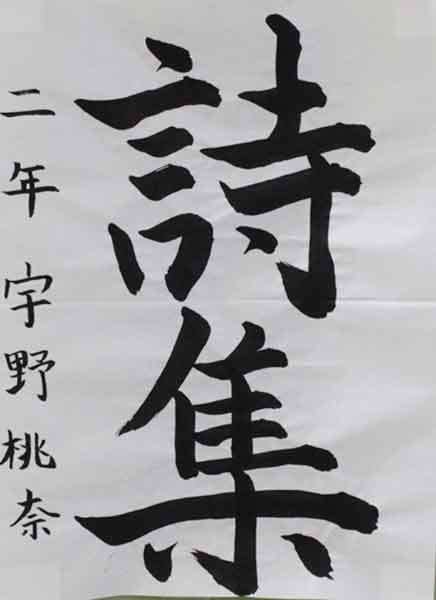 詩集
二年 宇野桃奈